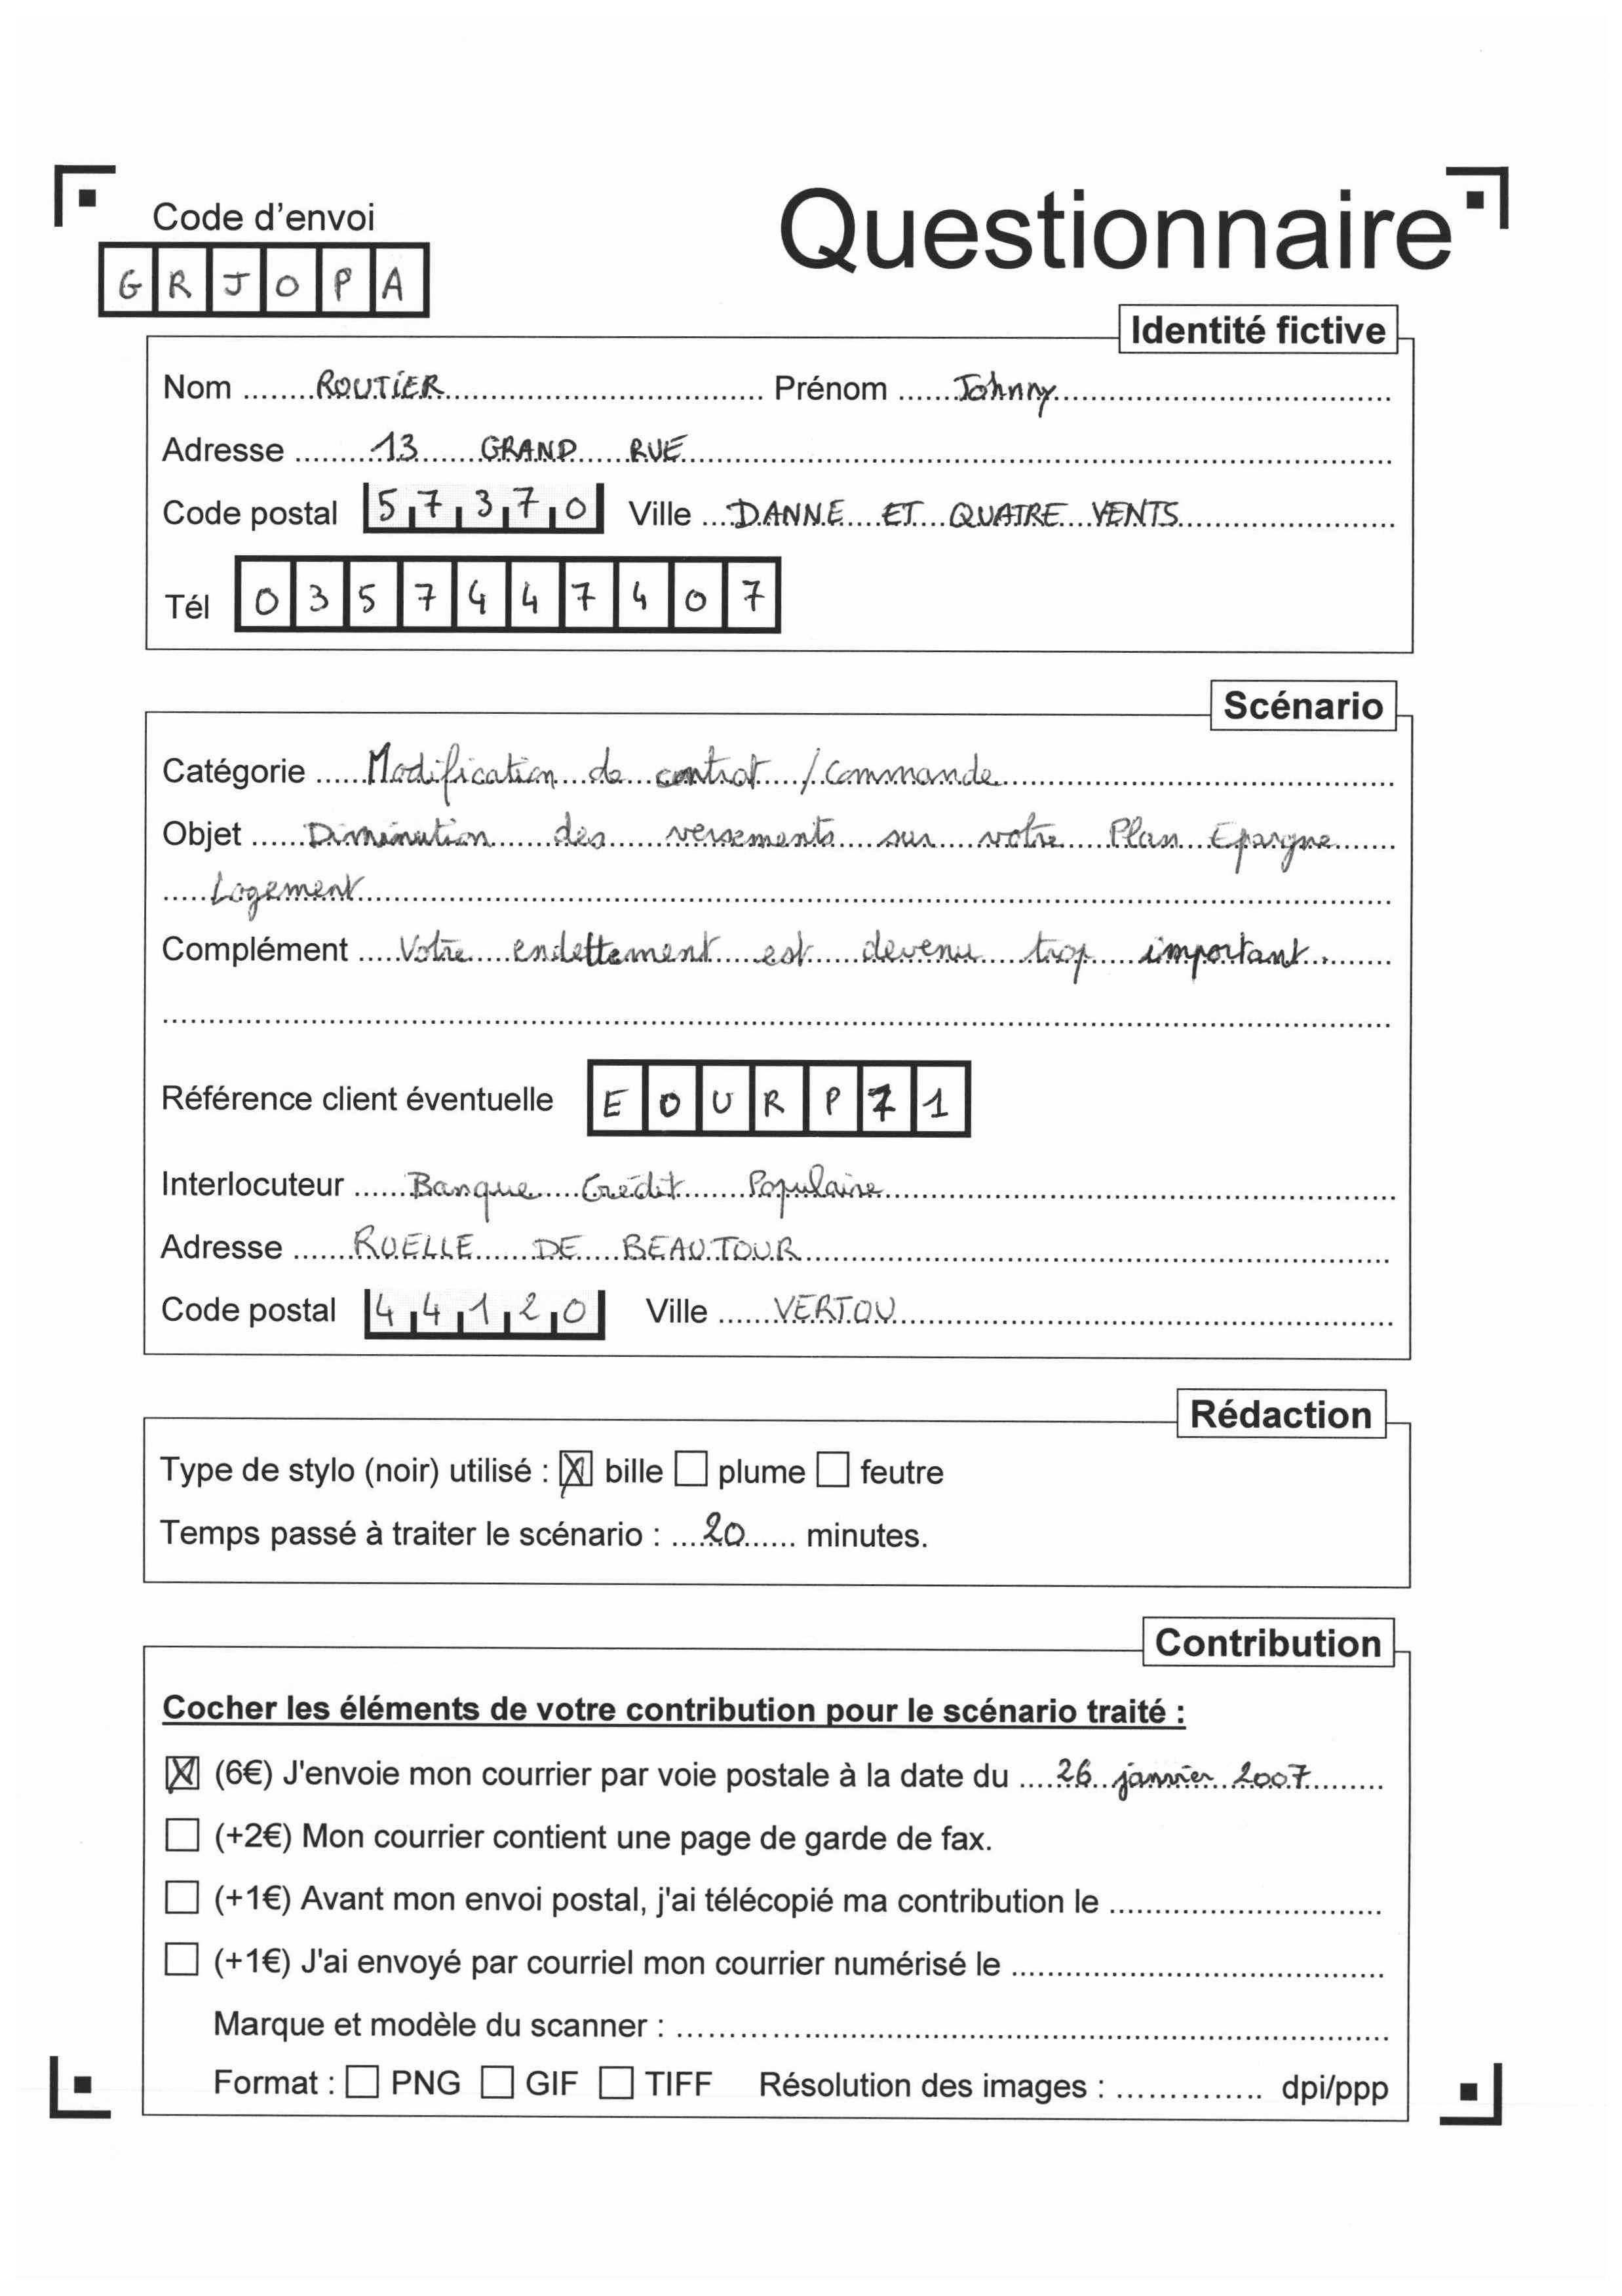 Code d'envoi
Questionnaire
GRJOPA
Identité fictive
Nom ROUTIER Prénom Johnny
Adresse 13 GRAND RUE
Code postal 57370 Ville DANNE ET QUATRE VENTS
Tél 0357447407
Scénario
Catégorie Modification de contrat / Commande
Objet Diminution des versements sur votre Plan Epargne
Logement
Complément Votre endettement est devenu trop important.
Référence client éventuelle EOURP71
Interlocuteur Banque Crédit Populaire
Adresse RUELLE DE BEAUTOUR
Code postal 44120 Ville VERTOU
Rédaction
Type de stylo (noir) utilisé : ☒ bille ☐ plume ☐ feutre
Temps passé à traiter le scénario : 20 minutes.
Contribution
Cocher les éléments de votre contribution pour le scénario traité :
☒ (6€) J'envoie mon courrier par voie postale à la date du 26 janvier 2007
☐ (+2€) Mon courrier contient une page de garde de fax.
☐ (+1€) Avant mon envoi postal, j'ai télécopié ma contribution le
☐ (+1€) J'ai envoyé par courriel mon courrier numérisé le
Marque et modèle du scanner :
Format : ☐ PNG ☐ GIF ☐ TIFF Résolution des images : dpi/ppp